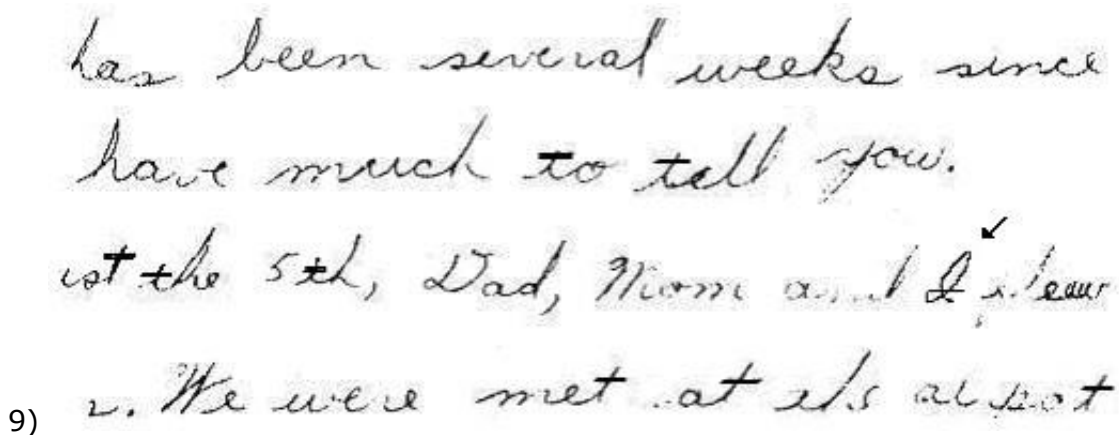 has been several weeks since
have much to tell you.
ust the 5th, Dad, Mom and I flew
9) r. We were met at the